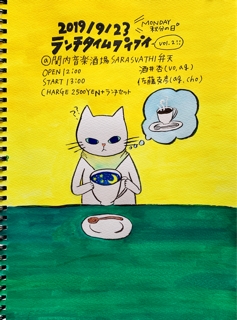 2019/9/23
MONDAY
秋分の日
ランチタイムワンツイ
vol.2!!
@関内音楽酒場SARASVATHI弁天
OPEN 12:00
START 13:00
CHARGE 2500YEN+ランチセット
酒井杏(vo,pf)
佐藤克彦(g,cho)
??